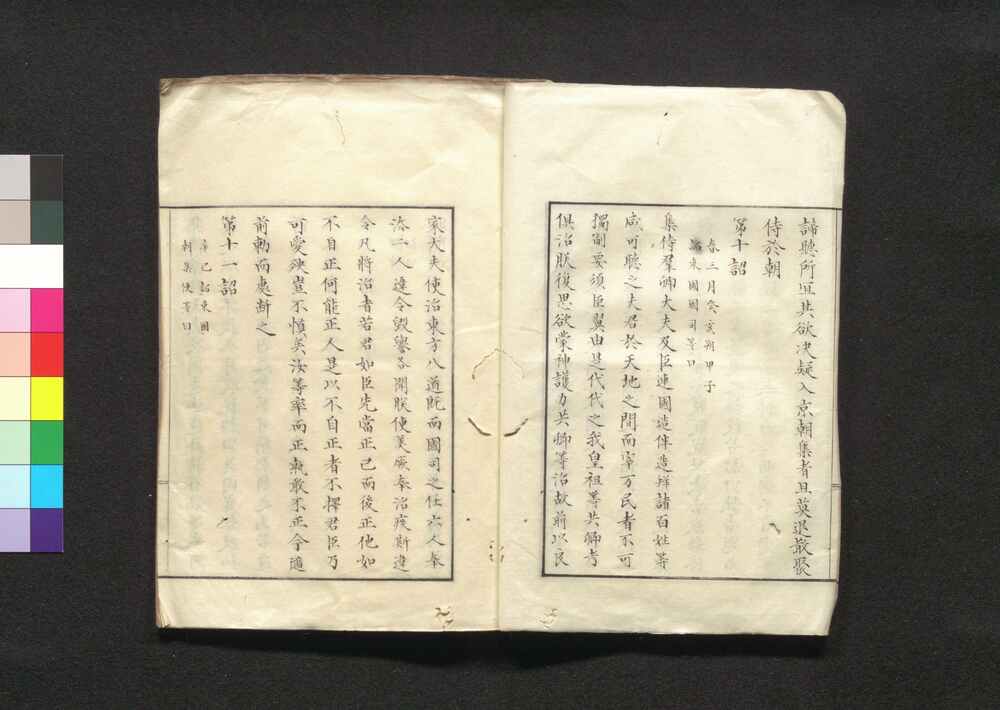 諦聽所宣其欲決疑入京朝集者且莫退散聚
侍於朝
第十詔
春三月癸亥朔甲子
詔東國國司等曰
集侍群卿大夫及臣連國造伴造幷諸百姓等
咸可聽之夫君於天地之間而宰万民者不可
獨制要須臣翼由是代代之我皇祖等共卿祖考
俱治朕復思欲蒙神護力共卿等治故前以良
家大夫使治東方八道既而國司之任六人奉
法二人違令毀譽各聞朕便美厥奉法疾斯違
令凡將治者若君如臣先當正己而後正他如
不自正何能正人是以不自正者不擇君臣乃
可受殃豈不慎矣汝等率而正孰敢不正今隨
前勅而處斷之
第十一詔
辛巳詔東國
朝集使等曰